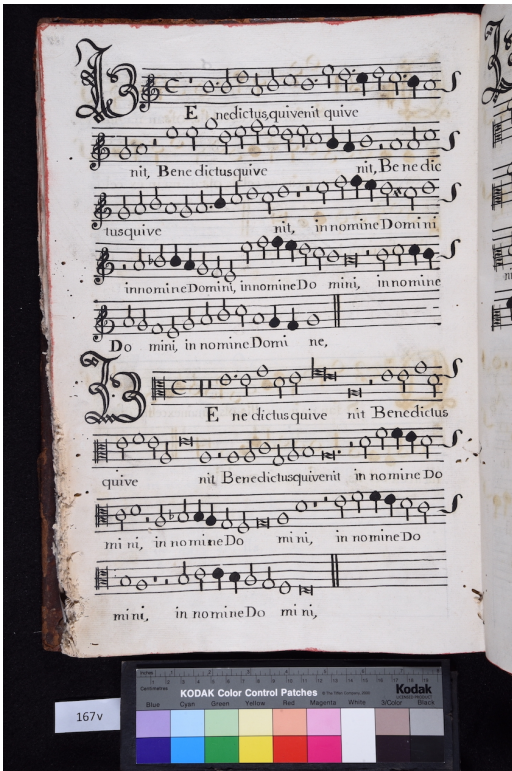 BE nedictus, qui venit qui ve
nit, Bene dictus qui ve nit, Be ne dic
tus qui ve nit, in nomine Domini
in nomine Domini, in nomine Do mini, in nomine
Do mini, in nomine Domi ne,
BE ne dictus qui ve nit Benedictus
qui ve nit Benedictus qui venit in nomine Do
mi ni, in no mi ne Do mi ni, in no mi ne Do
mi ni, in no mi ne Do mi ni,
167v
KODAK Color Control Patches
Kodak
LICENSED PRODUCT
Inches
Centimetres
Blue Cyan Green Yellow Red Magenta White 3/Color Black